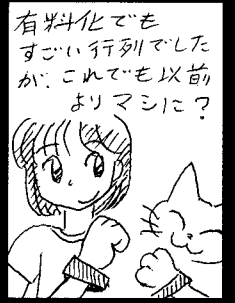 有料化でも
すごい行列でした
が、これでも以前
よりマシに？